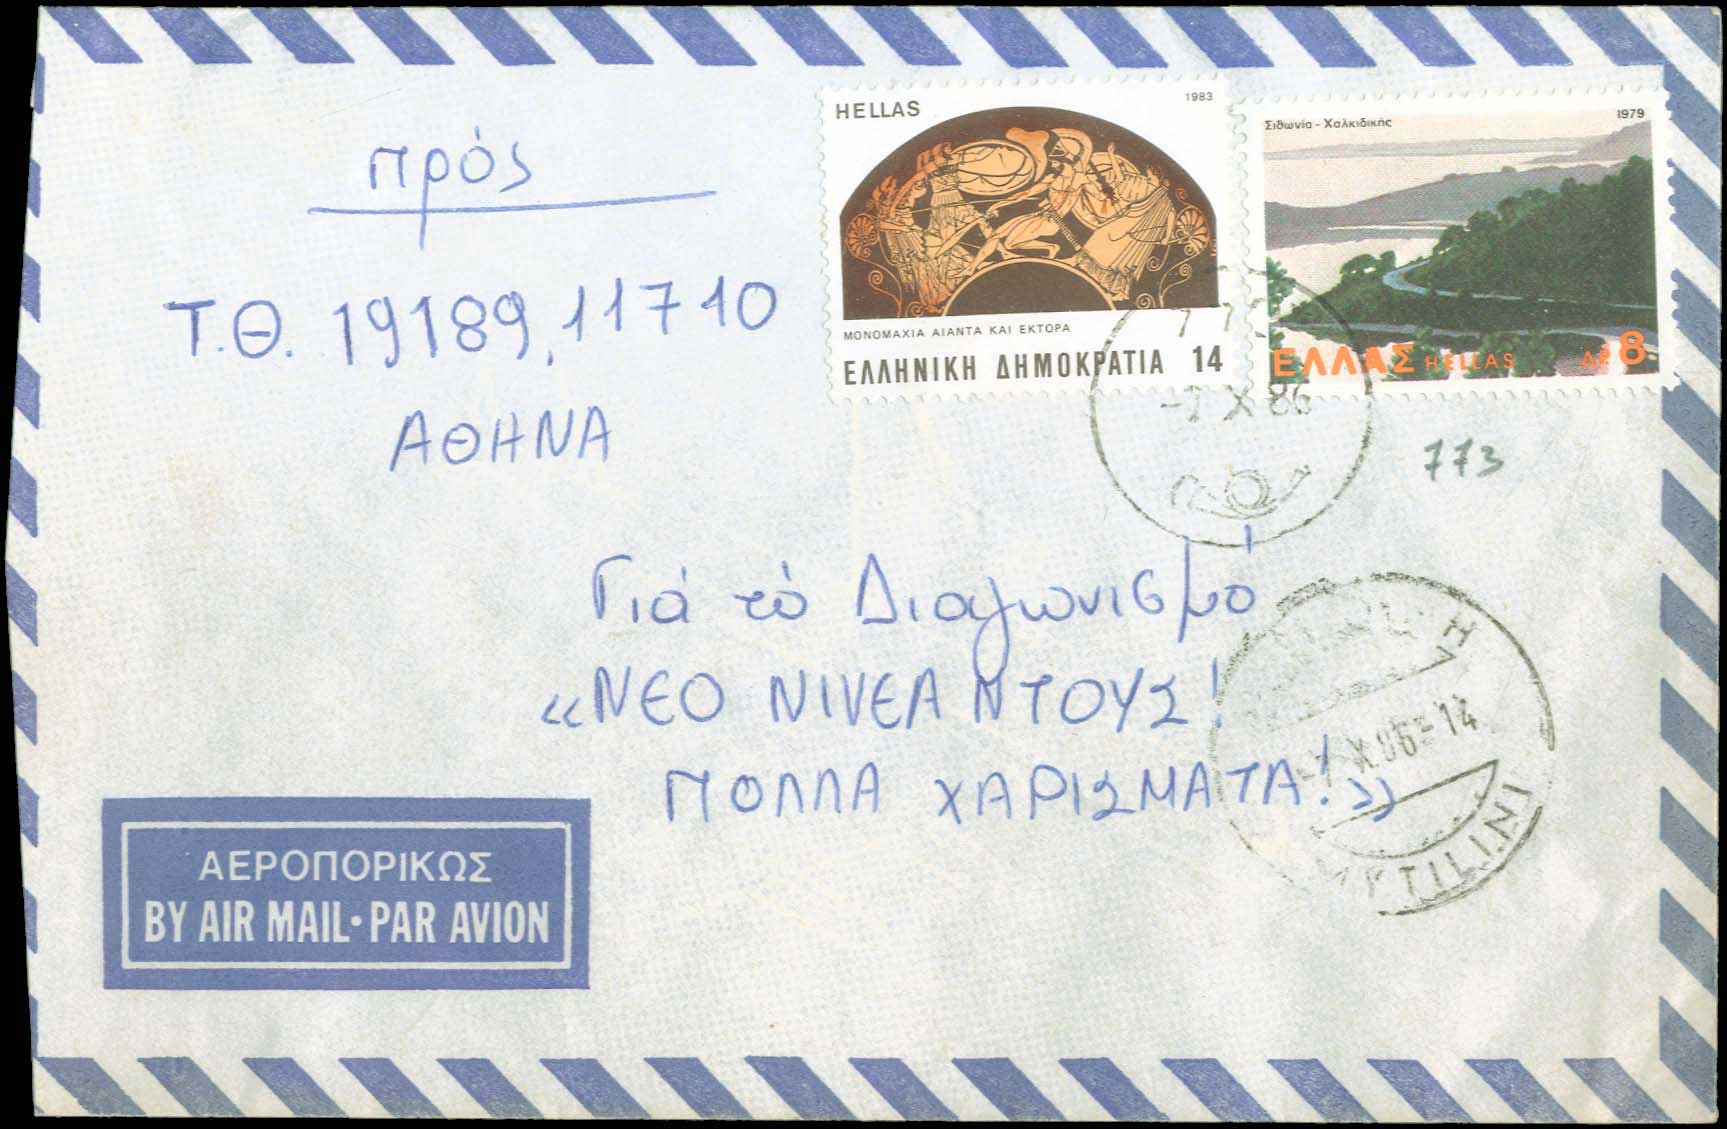 HELLAS 1983
ΜΟΝΟΜΑΧΙΑ ΑΙΑΝΤΑ ΚΑΙ ΕΚΤΟΡΑ
ΕΛΛΗΝΙΚΗ ΔΗΜΟΚΡΑΤΙΑ 14
Σιθωνία - Χαλκιδικής 1979
ΕΛΛΑΣ HELLAS ΔΡ 8
πρός
Τ.Θ. 19189, 11710
ΑΘΗΝΑ
-7 X 86
773
Γιά τό Διαγωνισμό
«ΝΕΟ ΝΙVΕΑ ΝΤΟΥΣ!
ΠΟΛΛΑ ΧΑΡΙΣΜΑΤΑ!»
-7 X 86 - 14
MYTILINI
ΑΕΡΟΠΟΡΙΚΩΣ
BY AIR MAIL • PAR AVION